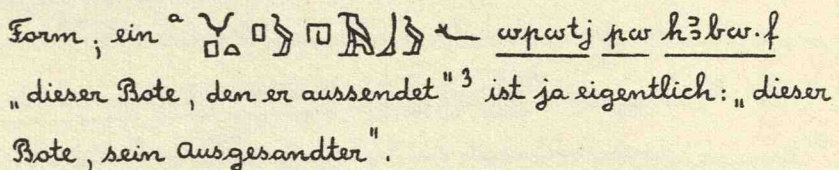 Form; ein ᵃ 𓄋𓊪𓏏𓊪𓅱𓉔𓄿𓃀𓅱𓆑 wpwtj pw hꜣbw·f
„dieser Bote, den er aussendet"³ ist ja eigentlich: „dieser
Bote, sein Ausgesandter".